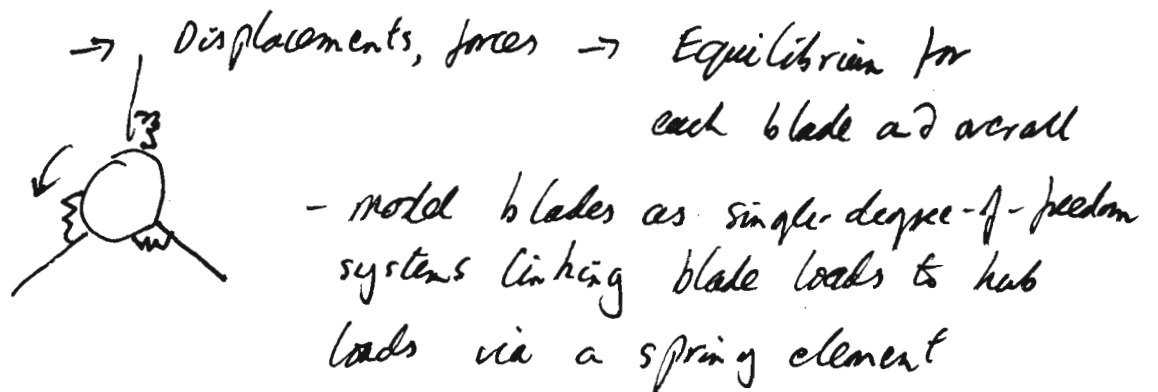 → Displacements, forces → Equilibrium for
each blade and overall
- model blades as single-degree-of-freedom
systems linking blade loads to hub
loads via a spring element